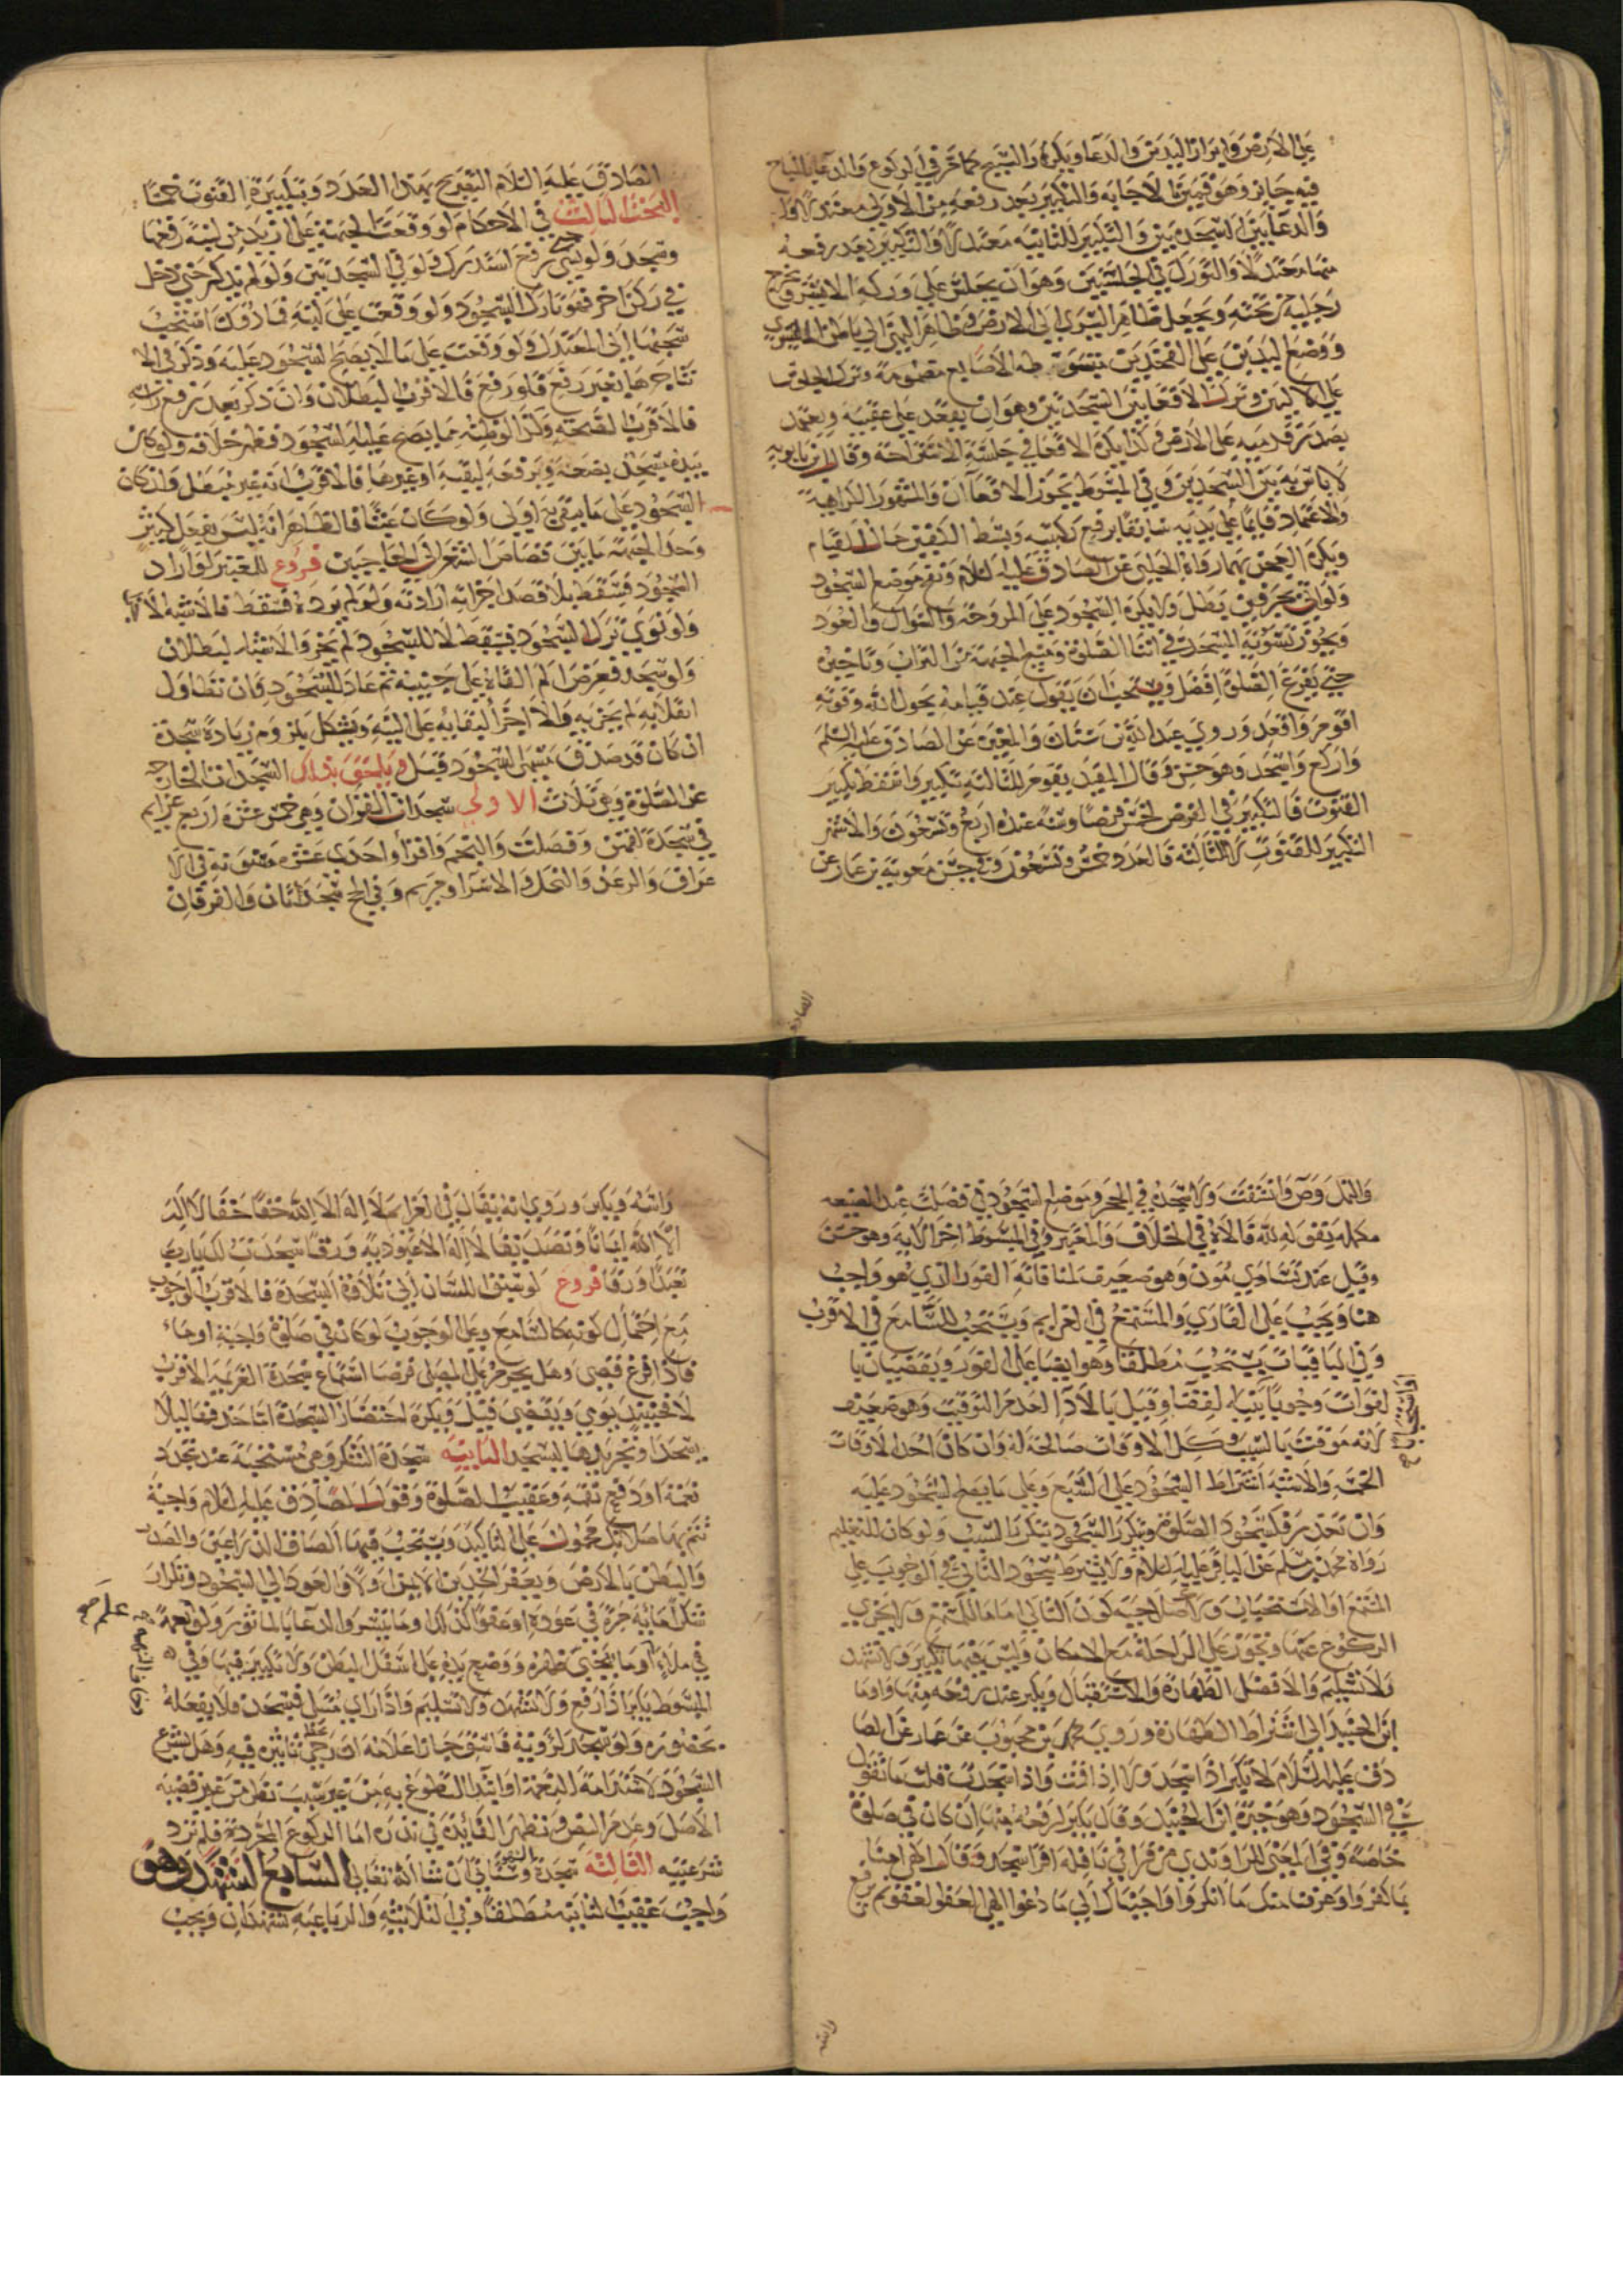 على الارض وابراز اليدين والدعا ويكره والتسبيح كما مر في الركوع والدعا بالمباح
فيه جايز وهو قمين بالاجابه والتكبير بعد رفعه من الاولى معتدلا و
والدعا بين السجدتين والتكبير للثانيه معتدلا والتكبير بعد رفعه
منها معتدلا والتورك في الجلستين وهو ان يجلس على وركه الايسر ويخرج
رجليه من تحته ويجعل ظاهر اليسرى الى الارض وظاهر اليمنى الى باطن اليسرى
ووضع اليدين على الفخذين مبسوطه الاصابع مضمومة وترك الجلوس
على الاليين وترك الاقعا بين السجدتين وهو ان يقعد على عقبيه ويعتمد
بصدر قدميه على الارض وكذا يكره الاقعا في جلسة الاستراحة وقال ابن بابويه
لا باس به بين السجدتين وفي المبسوط يجوز الاقعا ان والمشهور الكراهية
والاعتماد قايما على يديه سابقا برفع ركبتيه وبسط الكفين حالة القيام
ويكره العجن بهما رواه الحلبي عن الصادق عليه السلام ونفخ موضع السجود
ولو اتى بحرفين بطل ولا يكره السجود على المروحة والسواك والعود
ويجوز تسوية المسجد في اثنا الصلوة ومسح الجبهة من التراب وتاخيره
حتى يفرغ الصلوة افضل ويستحب ان يقول عند قيامه بحول الله وقوته
اقوم واقعد وروي عبد الله بن سنان والمغيره عن الصادق عليه السلم
واركع واسجد وهو حسن وقال المفيد يقوم للثالثه بتكبير واسقط تكبير
القنوت فالتكبير في الفرض لخمس فرضا وسنة عنده اربع وتسعون والاشهر
التكبير للقنوت لا للثالثه فالعدد خمس وتسعون وفي حسن معوية بن عمار عن
الصادق
الصادق عليه السلام التصريح بهذا العدد وبتكبيرة القنوت خمسا
البحث الثالث في الاحكام لو وقعت الجبهة على ازيد من لبنة رفعها
وسجد ولو نسي حتى رفع استدرك ولو في السجدتين ولو لم يذكر حتى دخل
في ركن اخر فهو تارك السجود ولو وقعت على لبنه فادون استحب
سحبها الى المعتدل ولو وقعت على ما لا يصح السجود عليه وذكر في الا
ثنا جرها بغير رفع فلو رفع فالاقرب البطلان وان ذكر بعد رفع راسه
فالاقرب الصحة وكذا لو ظنه مما يصح عليه السجود فظهر خلافه ولو كان
بيده مسجد يضعه ويرفعه لبقية او غيرها فالاقرب انه غير مبطل وان كان
السجود على ما يبقى بيده اولى ولو كان عبثا فالظاهر انه ليس بفعل كثير
وحد الجبهة ما بين قصاص الشعر الى الحاجبين فروع للمعتبر لو اراد
السجود فسقط بلا قصد اجزاته ارادته ولو لم يرده فسقط فالاشبه الاجزا
ولو نوى ترك السجود فسقط لا للسجود لم يجز والاشبه البطلان
ولو سجد فعرض الم القاه على جنبيه ثم عاد للسجود فان تطاول
انقلابه لم يجزيه والا اجزا لبقايه على النيه ويشكل بلزوم زيادة سجدة
ان كان قد صدق مسمى السجود قبل ويلحق بذلك السجدات الخارجه
عن الصلوة وهي ثلاث الاولى سجدات القران وهي خمس عشره اربع عزايم
في سجدة لقمن وفصلت والنجم واقرا واحدى عشره مسنونة في الا
عراف والرعد والنحل والاسرا ومريم وفي الحج سجدتان والفرقان
والنمل وص وانشقت ولا سجده في الحجر وموضع السجود في فصلت عند الصيغه
وهي قوله لله قاله في الخلاف والمعتبر وفي المبسوط اخر الايه وهو حسن
وقيل عند تسامون وهو ضعيف لمنافاته الفور الذي هو واجب
هنا ويجب على القاري والمستمع في العزايم ويستحب للسامع في الاقرب
وفي الباقيات يستحب مطلقا وهو ايضا على الفور ويقضيان با
لفوات وجوبا بنيه لفقضا وقيل بالادا لعدم التوقيت وهو ضعيف
او استحبابا
لانه موقت بالسبب وكل الاوقات صالحة له وان كان احد الاوقات
الخمسه والاشبه اشتراط السجود على السبع وعلى ما يصح السجود عليه
وان تعذر فكسجود الصلوة ويتكرر السجود بتكرر السبب ولو كان للتعليم
رواه محمد بن مسلم عن الباقر عليه السلام ولا يشترط سجود التالي في الوجوب على
المستمع او الاستحباب ولا صلاحيه كون التالي اماما للمستمع ولا يجزي
الركوع عنها وتجوز على الراحلة مع الامكان وليس فيها تكبير ولا تشهد
ولا تسليم والافضل الطهارة والاستقبال ويكبر عند رفعه منها واوما
ابن الجنيد الى اشتراط الطهارة وروي محمد بن محبوب عن عمار عن الصا
دق عليه السلام لا تكبر اذا سجد ولا اذا قمت واذا سجدت قلت ما تقول
في السجود وهو خيرة ابن الجنيد وقال يكبر لرفعه منها ان كان في صلوة
خاصة وفي المغني للراوندي من قرا في نافله اقرا سجد وقال الهي امنا
بما كفروا وعرفنا منك ما انكروا واجبناك الى ما دعوا الهي العفو العفو ثم يرفع
راسه
راسه ويكبر وروي انه يقال في العزايم لا اله الا الله حقا حقا لا اله
الا الله ايمانا وتصديقا لا اله الا عبودية ورقا سجدت لك يا رب
تعبدا ورقا فروع لو سبق اللسان الى تلاوة السجدة فالاقرب الوجوب
مع احتمال كونه كالسامع وعلى الوجوب لو كان في صلوة واجبة اوماء
فاذا فرغ قضى وهل يحرم على المصلي فرضا استماع سجدة العزيمه الاقرب
لا فحينئذ يومي ويقضي قيل ويكره اختصار السجدة اما حذفها ليلا
يسجد او تجريدها ليسجد الثانيه سجدة الشكر وهي مستحبة عند تجدد
نعمة او دفع نقمه وعقيب الصلوة وقول الصادق عليه السلام واجبة
تتم بها صلاتك محمول على التاكيد ويستحب فيها الصاق الذراعين والصدر
والبطن بالارض ويعفر الخدين الايمن اولا والعود الى السجود وتكرار
شكرا مائة مرة في عوده او عفوا كذلك وما تيسر والدعا بالماثور ولو نعمه
في ملاء او ما ينحني ظهره ووضع يده على اسفل البطن ولا تكبير فيها وفي
المبسوط يكبر اذا رفع ولا تشهد ولا تسليم واذا راى مبتلى فسجد فلا يفعله
بحضوره ولو سجد لرؤية فاسق جاز اعلامه ان رجى تاثيره فيه وهل يشرع
السجود لاستدامة النعمة او ابتدا التطوع به من غير سبب نظر من غير قضيه
الاصل وعدم النص وتظهر الفائدة في نذره اما الركوع المفردة فلم ترد
شرعيته الثالثه سجدة السهو وستاتي ان شا الله تعالى السابع التشهد وهو
واجب عقيب الثانيه مطلقا وفي الثلاثيه والرباعيه تشهدان ويجب